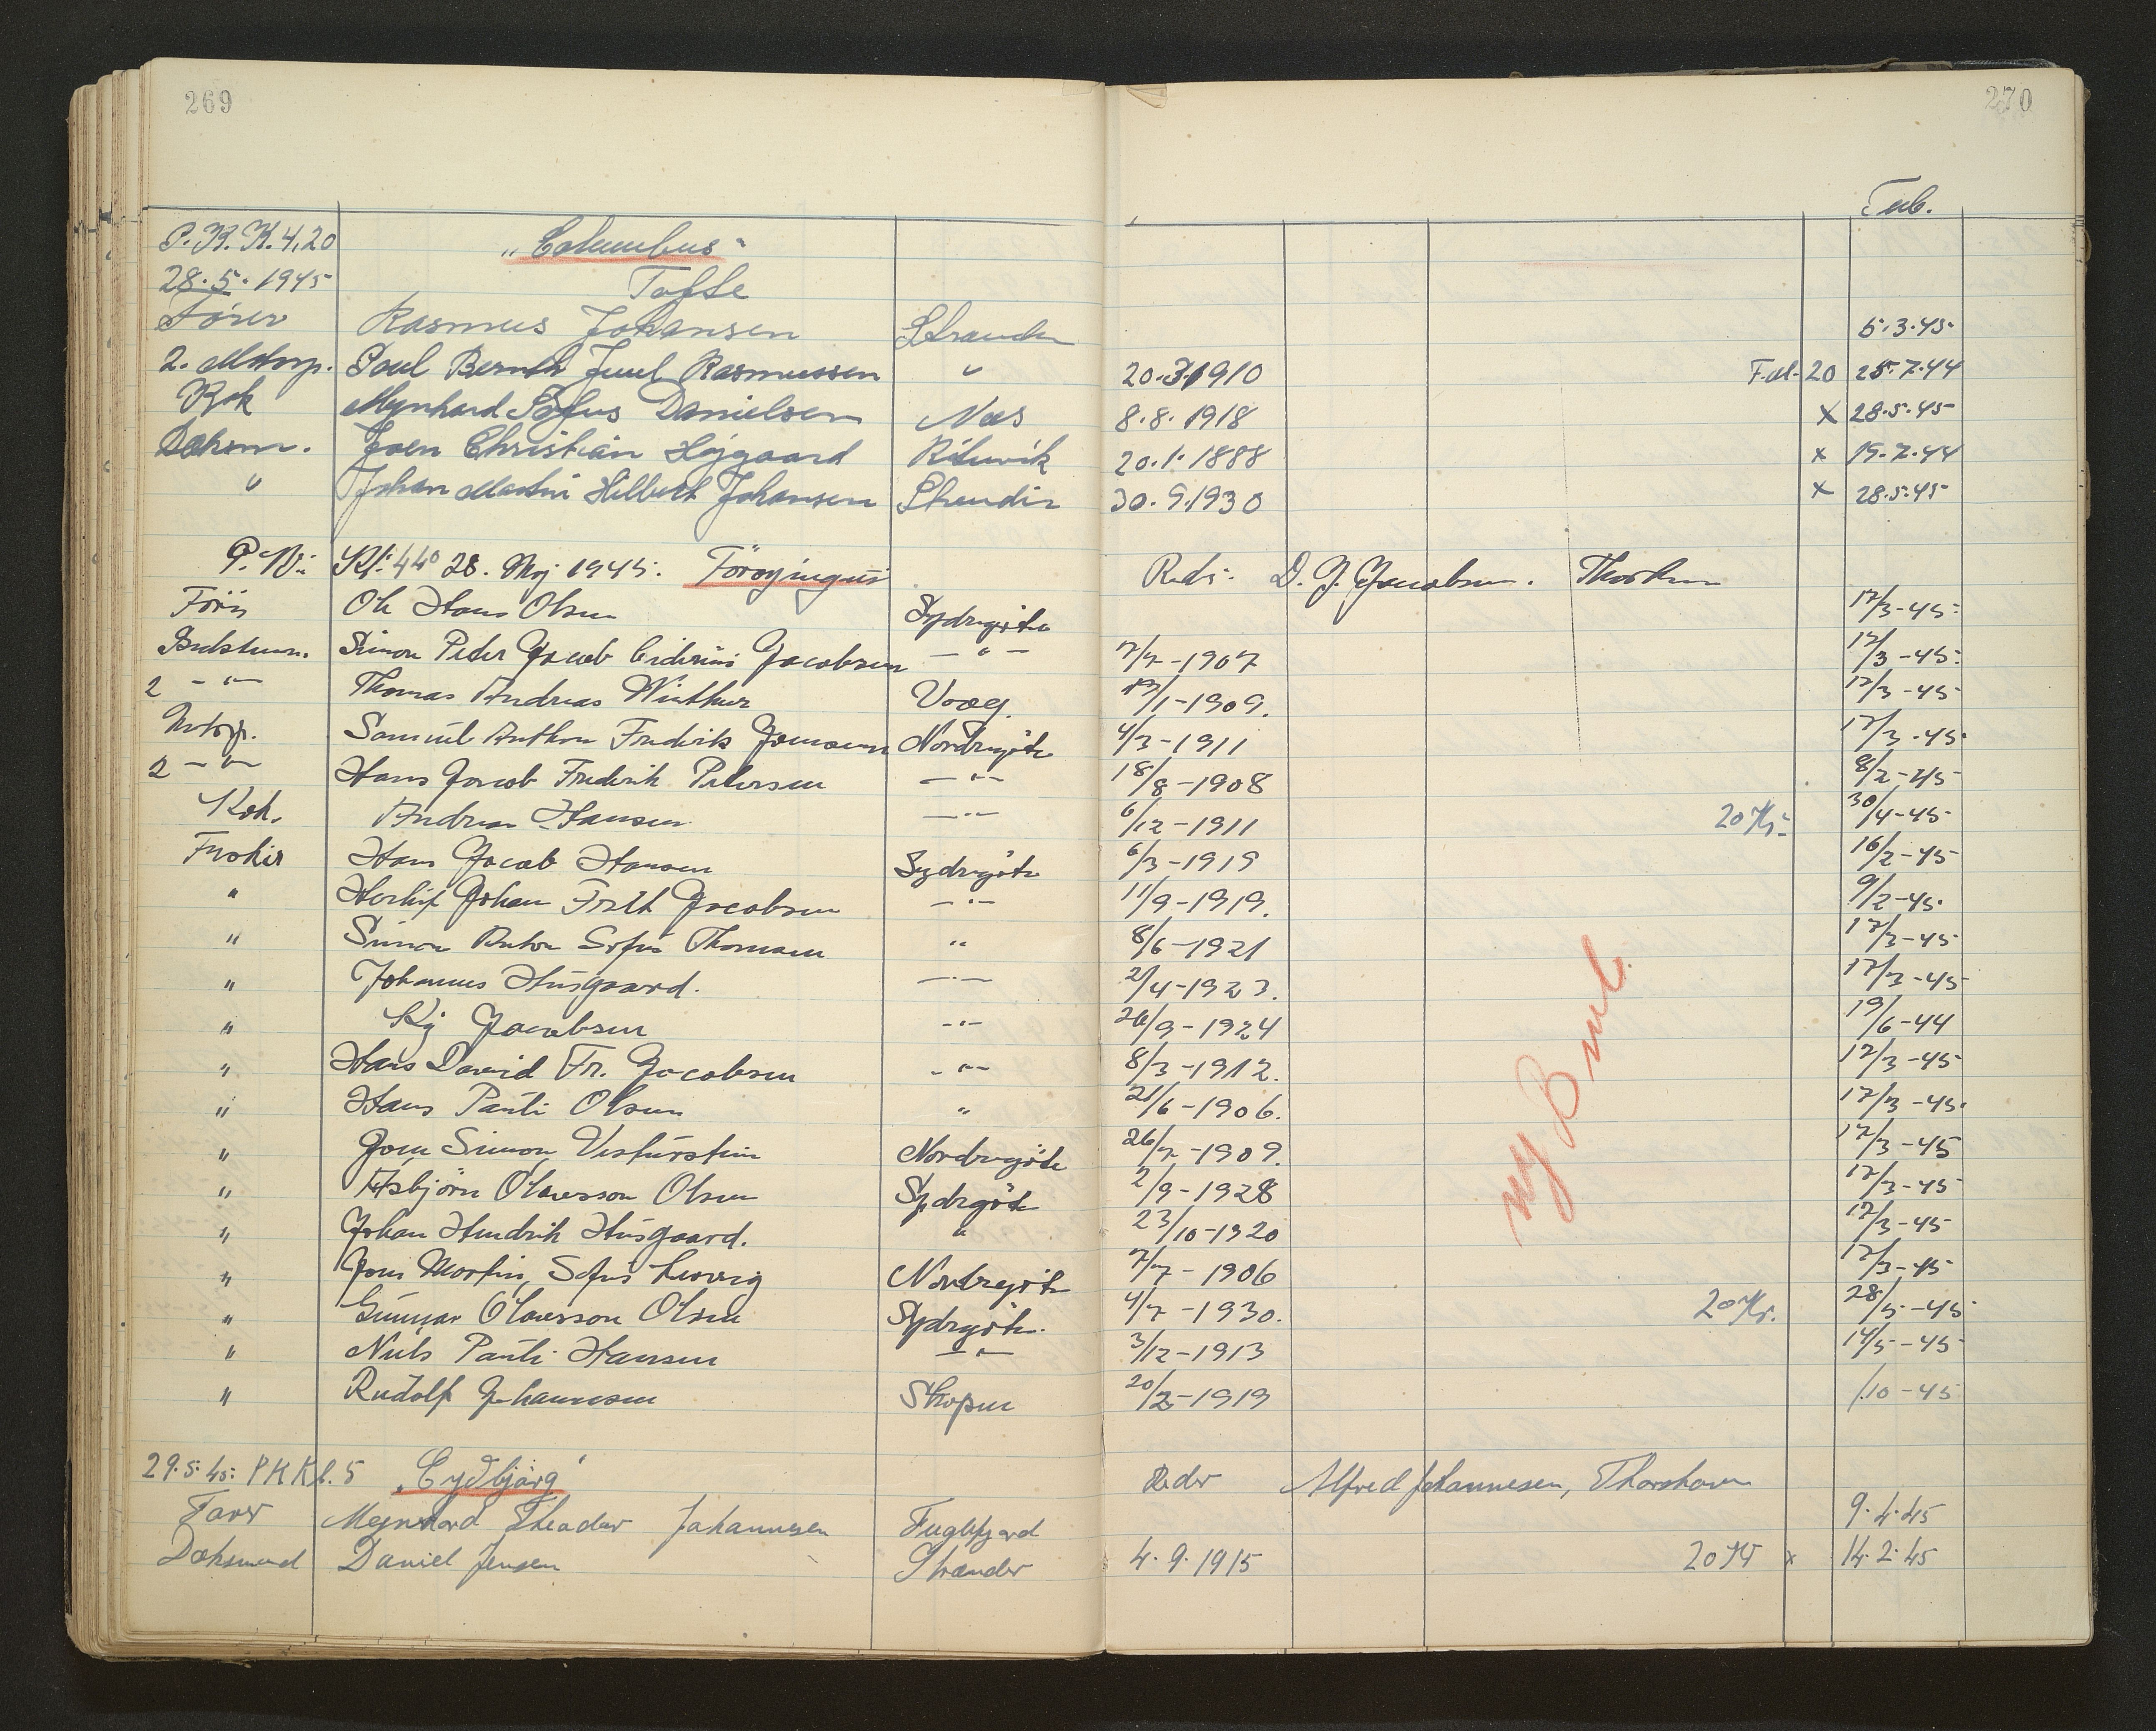 269
270
Tub.
P.K.K. 4,20 "Columbus"
28.5.1945 Tofte
Fører Rasmus Johansen Strander 5.3.45
2. Motorp. Poul Berndt Juul Rasmussen " 20.3.1910 20 25.7.44
Kok Mynhard Sofus Danielsen Næs 8.8.1918 X 28.5.45
Dæksm. Joen Christian Højgaard Rituvik 20.1.1888 x 19.7.44
" Johan Martin Hilbert Johansen Strendir 30.9.1930 x 28.5.45
P.K. Kl: 4 40 28. Maj 1945. Föroyingur Red: D. J. Jacobsen. Thorshavn
Förer Ole Hans Olsen Sydrugöte 17/3-45
Bedstem. Simon Peter Jacob Jacobsen - " - 7/7-1907 17/3-45
2 - " - Thomas Andreas Winther Vaag. 1909. 17/3-45
Motorp. Samuel Anthon Frederik Joensen Nordregöte 4/3-1911 17/3-45
2 - " - Hans Jacob Frederik Petersen - " - 18/8-1908 8/2-45
Kok. Andreas Hansen - " - 6/12-1911 20 Kr. 30/4-45
Fisker Hans Jacob Hansen Sydrugöte 6/3-1919 16/2-45
" Herleif Johan Jacobsen - " - 11/9-1919. 9/2-45
" Simon Anton Sofus Thomsen " 8/6-1921 17/3-45
" Johannus Húsgaard. - " - 2/4-1923. 17/3-45
" Kaj Jacobsen - " - 26/9-1924 19/6-44
" Hans David Fr. Jacobsen - " - 8/3-1912. 17/3-45
" Hans Pauli Olsen " 21/6-1906. 17/3-45
ny Bmb.
" Joen Simon Vesturstein Nordregöte 26/7-1909. 17/3-45
" Asbjörn Olavsson Olsen Sydregöte 2/9-1928 17/3-45
" Johan Hendrik Húsgaard. " 23/10-1920 17/3-45
" Jens Martin Sofus Lervig Nordregöte 7/7-1906 17/3-45
" Gunnar Olavsson Olsen Sydrugöte. 4/7-1930. 20 Kr. 28/5-45
" Niels Pauli Hansen - " - 3/12-1913 14/5-45
" Rudolf Johannesen Skopun 20/2-1919 /10-45
29.5.45: P K Kl. 5 "Eydbjörg" Reder Alfred Johannesen, Thorshavn
Fører Meynhard Theodor Johannesen Fuglefjord 9.4.45
Dæksmand Daniel Jensen Strender 4.9.1915 20 Kr x 14.2.45